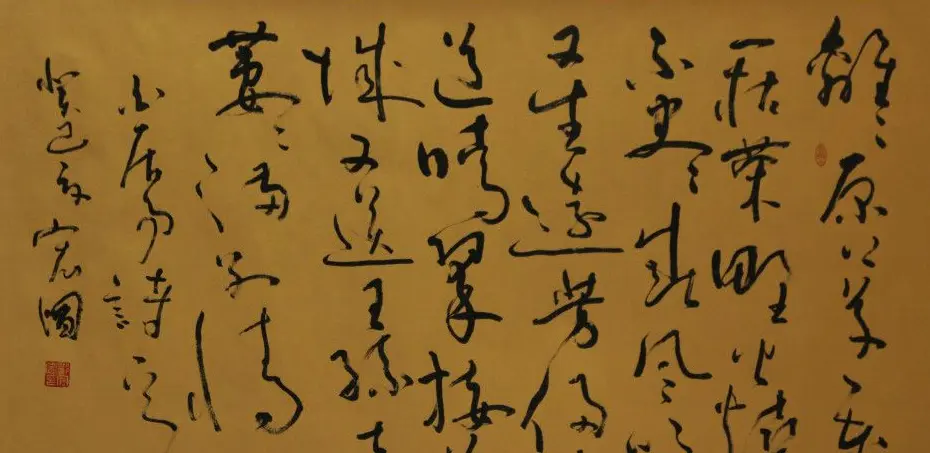 離離原上草一歲
一枯榮野火燒
不盡春風吹
又生遠芳侵
道晴翠接荒
城又送王孫去
萋萋滿別情
白居易詩
癸巳秋宏圖